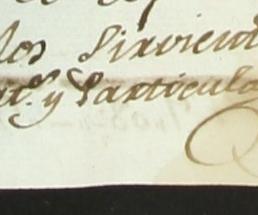 los Sirvient
y Particula